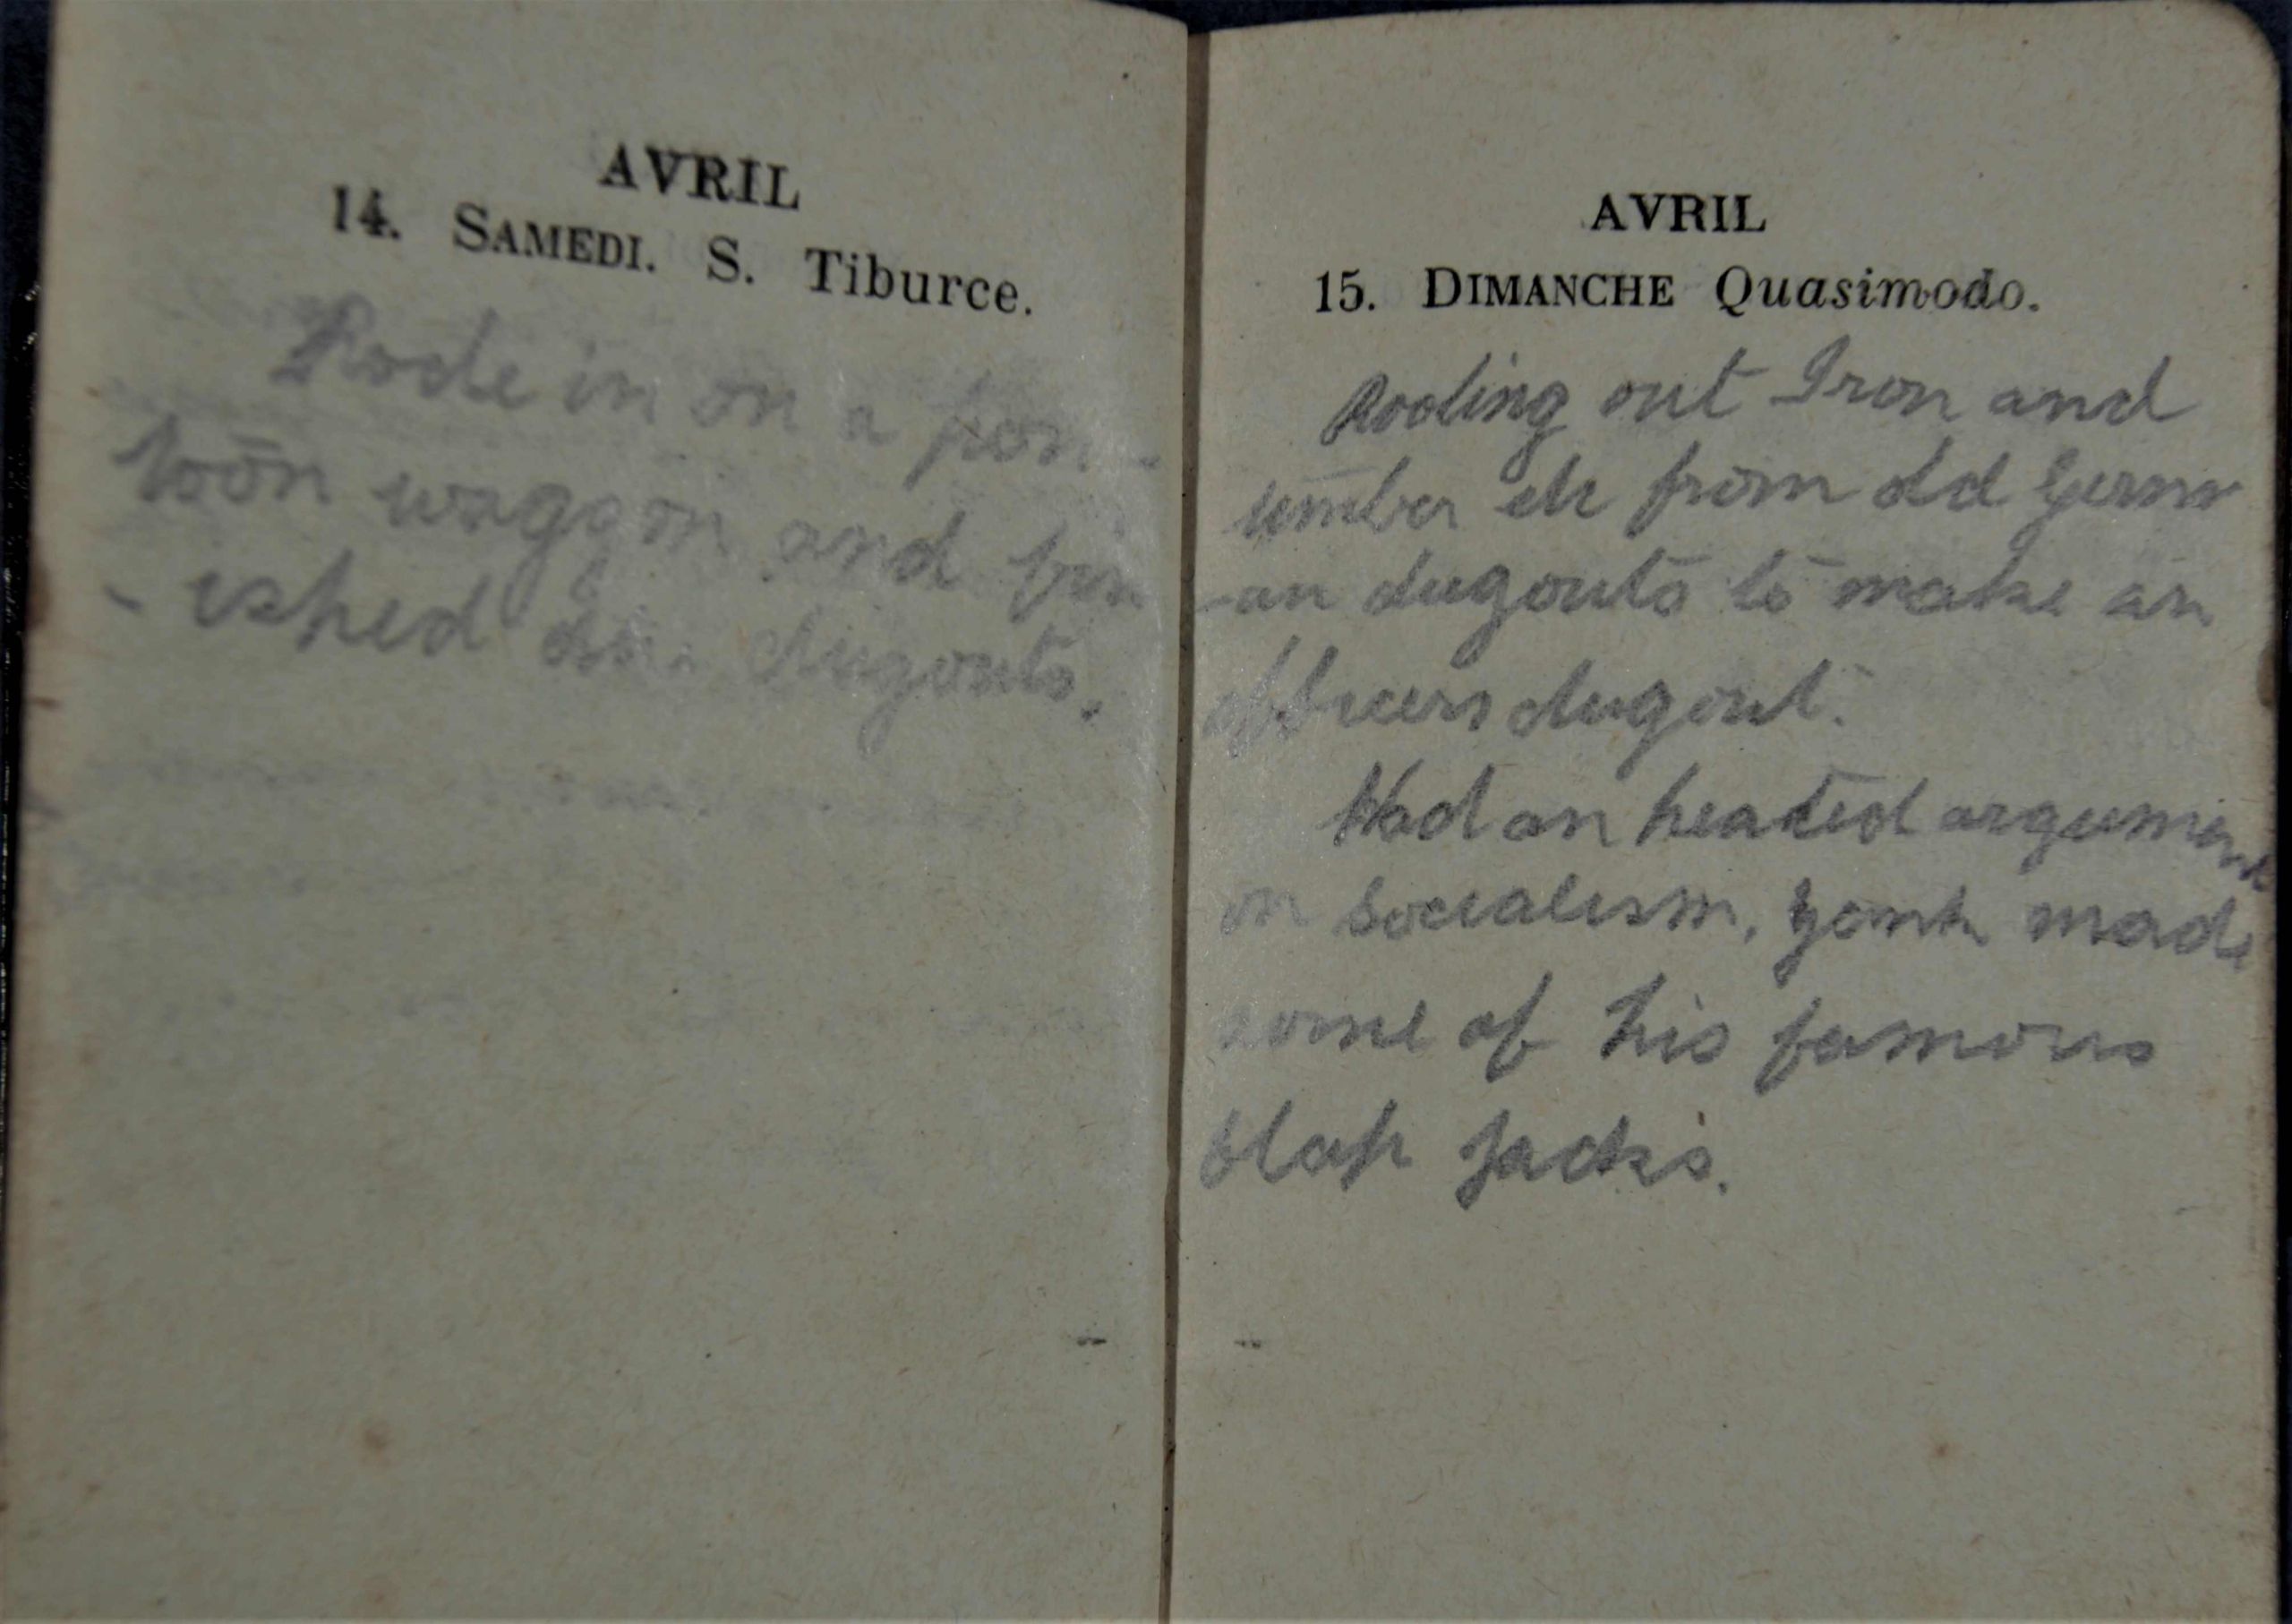 AVRIL
14. SAMEDI. S. Tiburce.
Rode in on a pon-
toon waggon and fin
-ished dugouts.
AVRIL
15. DIMANCHE Quasimodo.
Rooting out Iron and
timber etc from old Germ
-an dugouts to make an
officers dugout.
Had an heated argument
on Socialism, made
some of his famous
flap jacks.